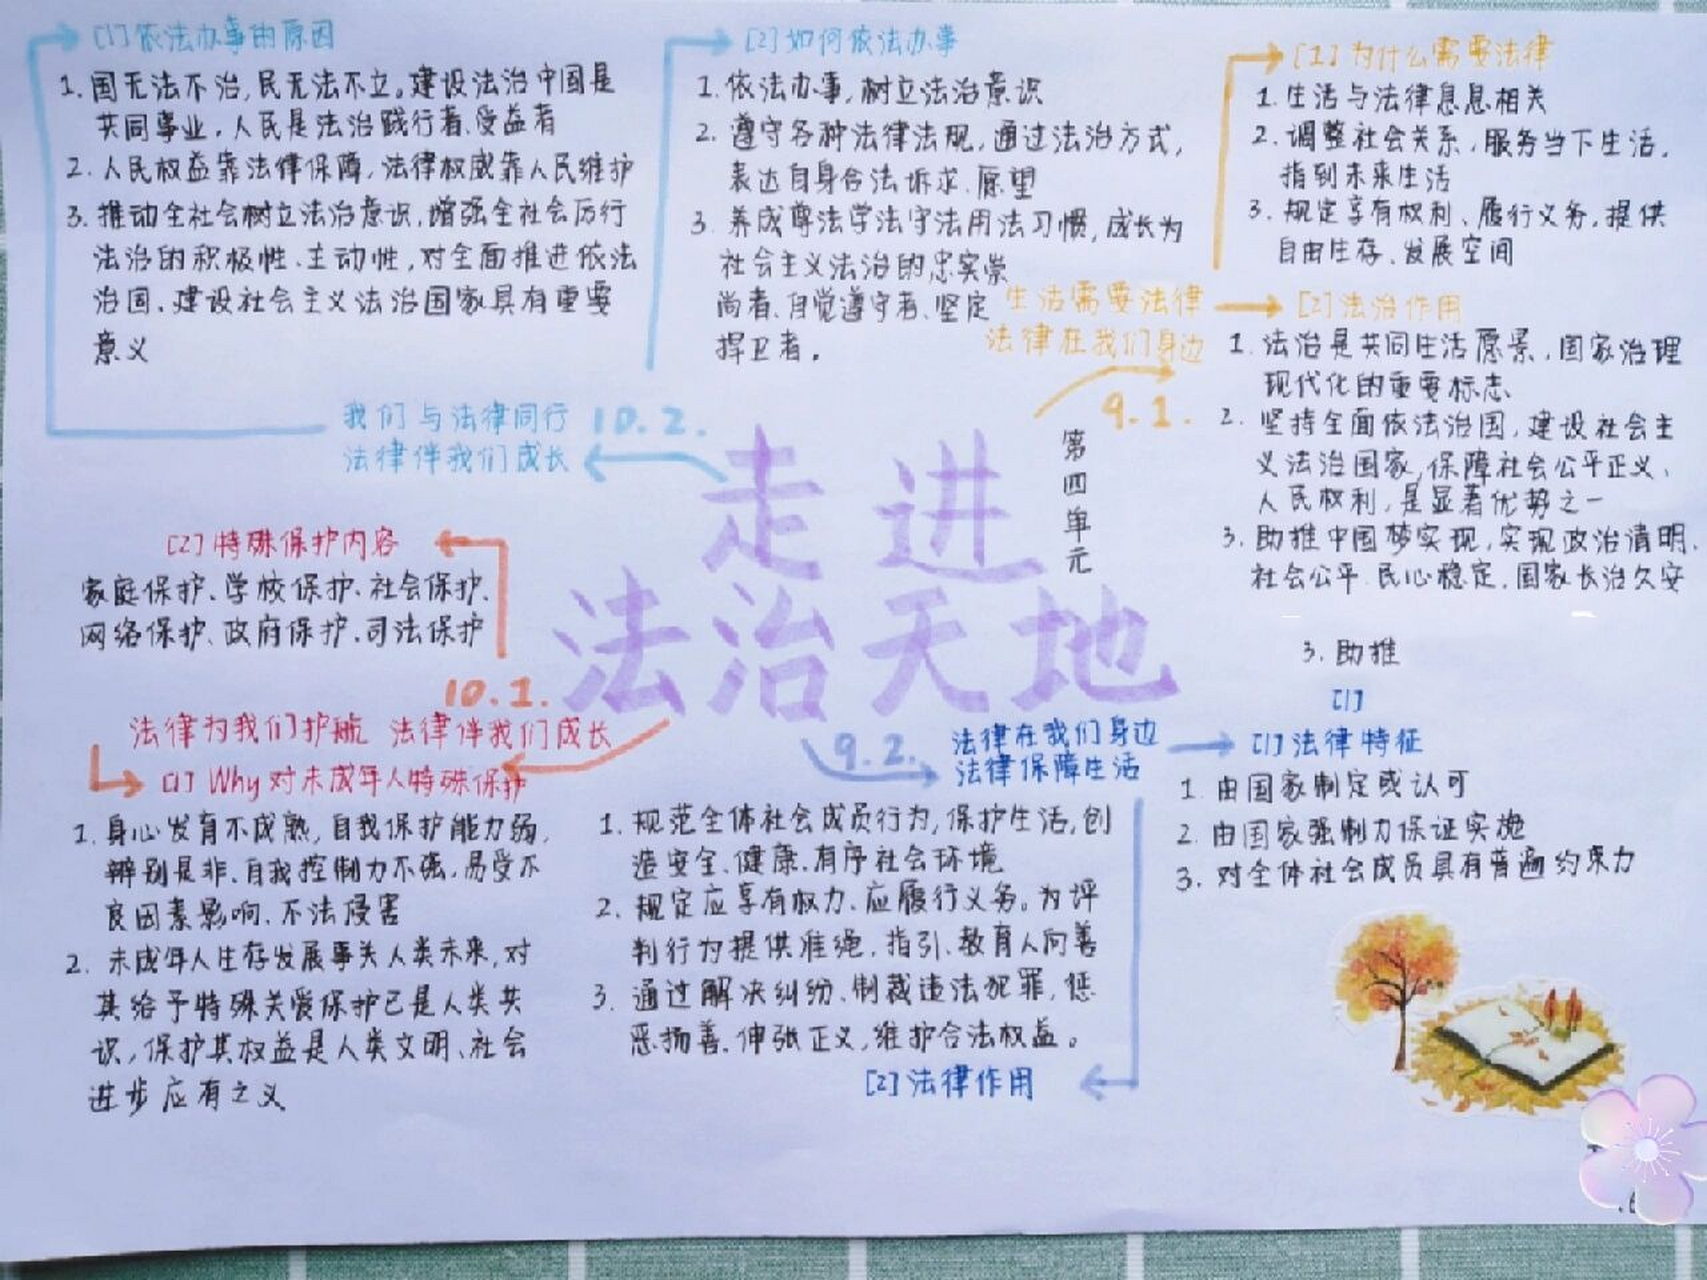 [1]依法办事的原因
1.国无法不治,民无法不立。建设法治中国是
共同事业,人民是法治践行者、受益者
2.人民权益靠法律保障,法律权威靠人民维护
3.推动全社会树立法治意识,增强全社会厉行
法治的积极性、主动性,对全面推进依法
治国、建设社会主义法治国家具有重要
意义
[2]如何依法办事
1.依法办事,树立法治意识
2.遵守各种法律法规,通过法治方式,
表达自身合法诉求、愿望
3.养成尊法学法守法用法习惯,成长为
社会主义法治的忠实崇
尚者、自觉遵守者、坚定
捍卫者。
[1]为什么需要法律
1.生活与法律息息相关
2.调整社会关系,服务当下生活,
指到未来生活
3.规定享有权利、履行义务,提供
自由生存、发展空间
生活需要法律
法律在我们身边
9.1.
[2]法治作用
1.法治是共同生活愿景,国家治理
现代化的重要标志
2.坚持全面依法治国,建设社会主
义法治国家,保障社会公平正义、
人民权利,是显著优势之一
3.助推中国梦实现,实现政治清明、
社会公平、民心稳定、国家长治久安
3.助推
[1]
我们与法律同行
法律伴我们成长
10.2.
第四单元
走进
法治天地
[2]特殊保护内容
家庭保护、学校保护、社会保护、
网络保护、政府保护、司法保护
10.1.
法律为我们护航 法律伴我们成长
[1]Why对未成年人特殊保护
1.身心发育不成熟,自我保护能力弱,
辨别是非、自我控制力不强,易受不
良因素影响、不法侵害
2.未成年人生存发展事关人类未来,对
其给予特殊关爱保护已是人类共
识,保护其权益是人类文明、社会
进步应有之义
9.2.
法律在我们身边
法律保障生活
[1]法律特征
1.由国家制定或认可
2.由国家强制力保证实施
3.对全体社会成员具有普遍约束力
1.规范全体社会成员行为,保护生活,创
造安全、健康、有序社会环境
2.规定应享有权力、应履行义务。为评
判行为提供准绳,指引、教育人向善
3.通过解决纠纷、制裁违法犯罪,惩
恶扬善、伸张正义,维护合法权益。
[2]法律作用